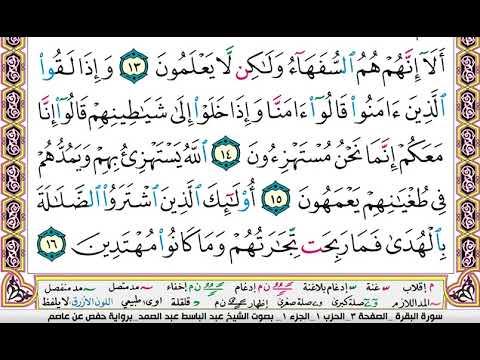 أَلَآ إِنَّهُمْ هُمُ ٱلسُّفَهَآءُ وَلَـٰكِن لَّا يَعْلَمُونَ ١٣ وَإِذَا لَقُوا۟
ٱلَّذِينَ ءَامَنُوا۟ قَالُوٓا۟ ءَامَنَّا وَإِذَا خَلَوْا۟ إِلَىٰ شَيَـٰطِينِهِمْ قَالُوٓا۟ إِنَّا
مَعَكُمْ إِنَّمَا نَحْنُ مُسْتَهْزِءُونَ ١٤ ٱللَّهُ يَسْتَهْزِئُ بِهِمْ وَيَمُدُّهُمْ
فِى طُغْيَـٰنِهِمْ يَعْمَهُونَ ١٥ أُو۟لَـٰٓئِكَ ٱلَّذِينَ ٱشْتَرَوُا۟ ٱلضَّلَـٰلَةَ
بِٱلْهُدَىٰ فَمَا رَبِحَت تِّجَـٰرَتُهُمْ وَمَا كَانُوا۟ مُهْتَدِينَ ١٦
م إقلاب س غنة س إدغام بلاغنة ن م إدغام ن م إخفاء مد متصل مد منفصل
المد اللازم صلة كبرى صلة صغرى إظهار قلقلة اوى طبيعي اللون الأزرق لا يلفظ
سورة البقرة _الصفحة ٣_ الحزب ١_ الجزء ١_ بصوت الشيخ عبد الباسط عبد الصمد_ برواية حفص عن عاصم